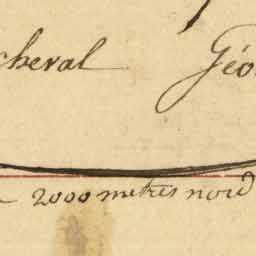 cheval Géo
2000 metres nord